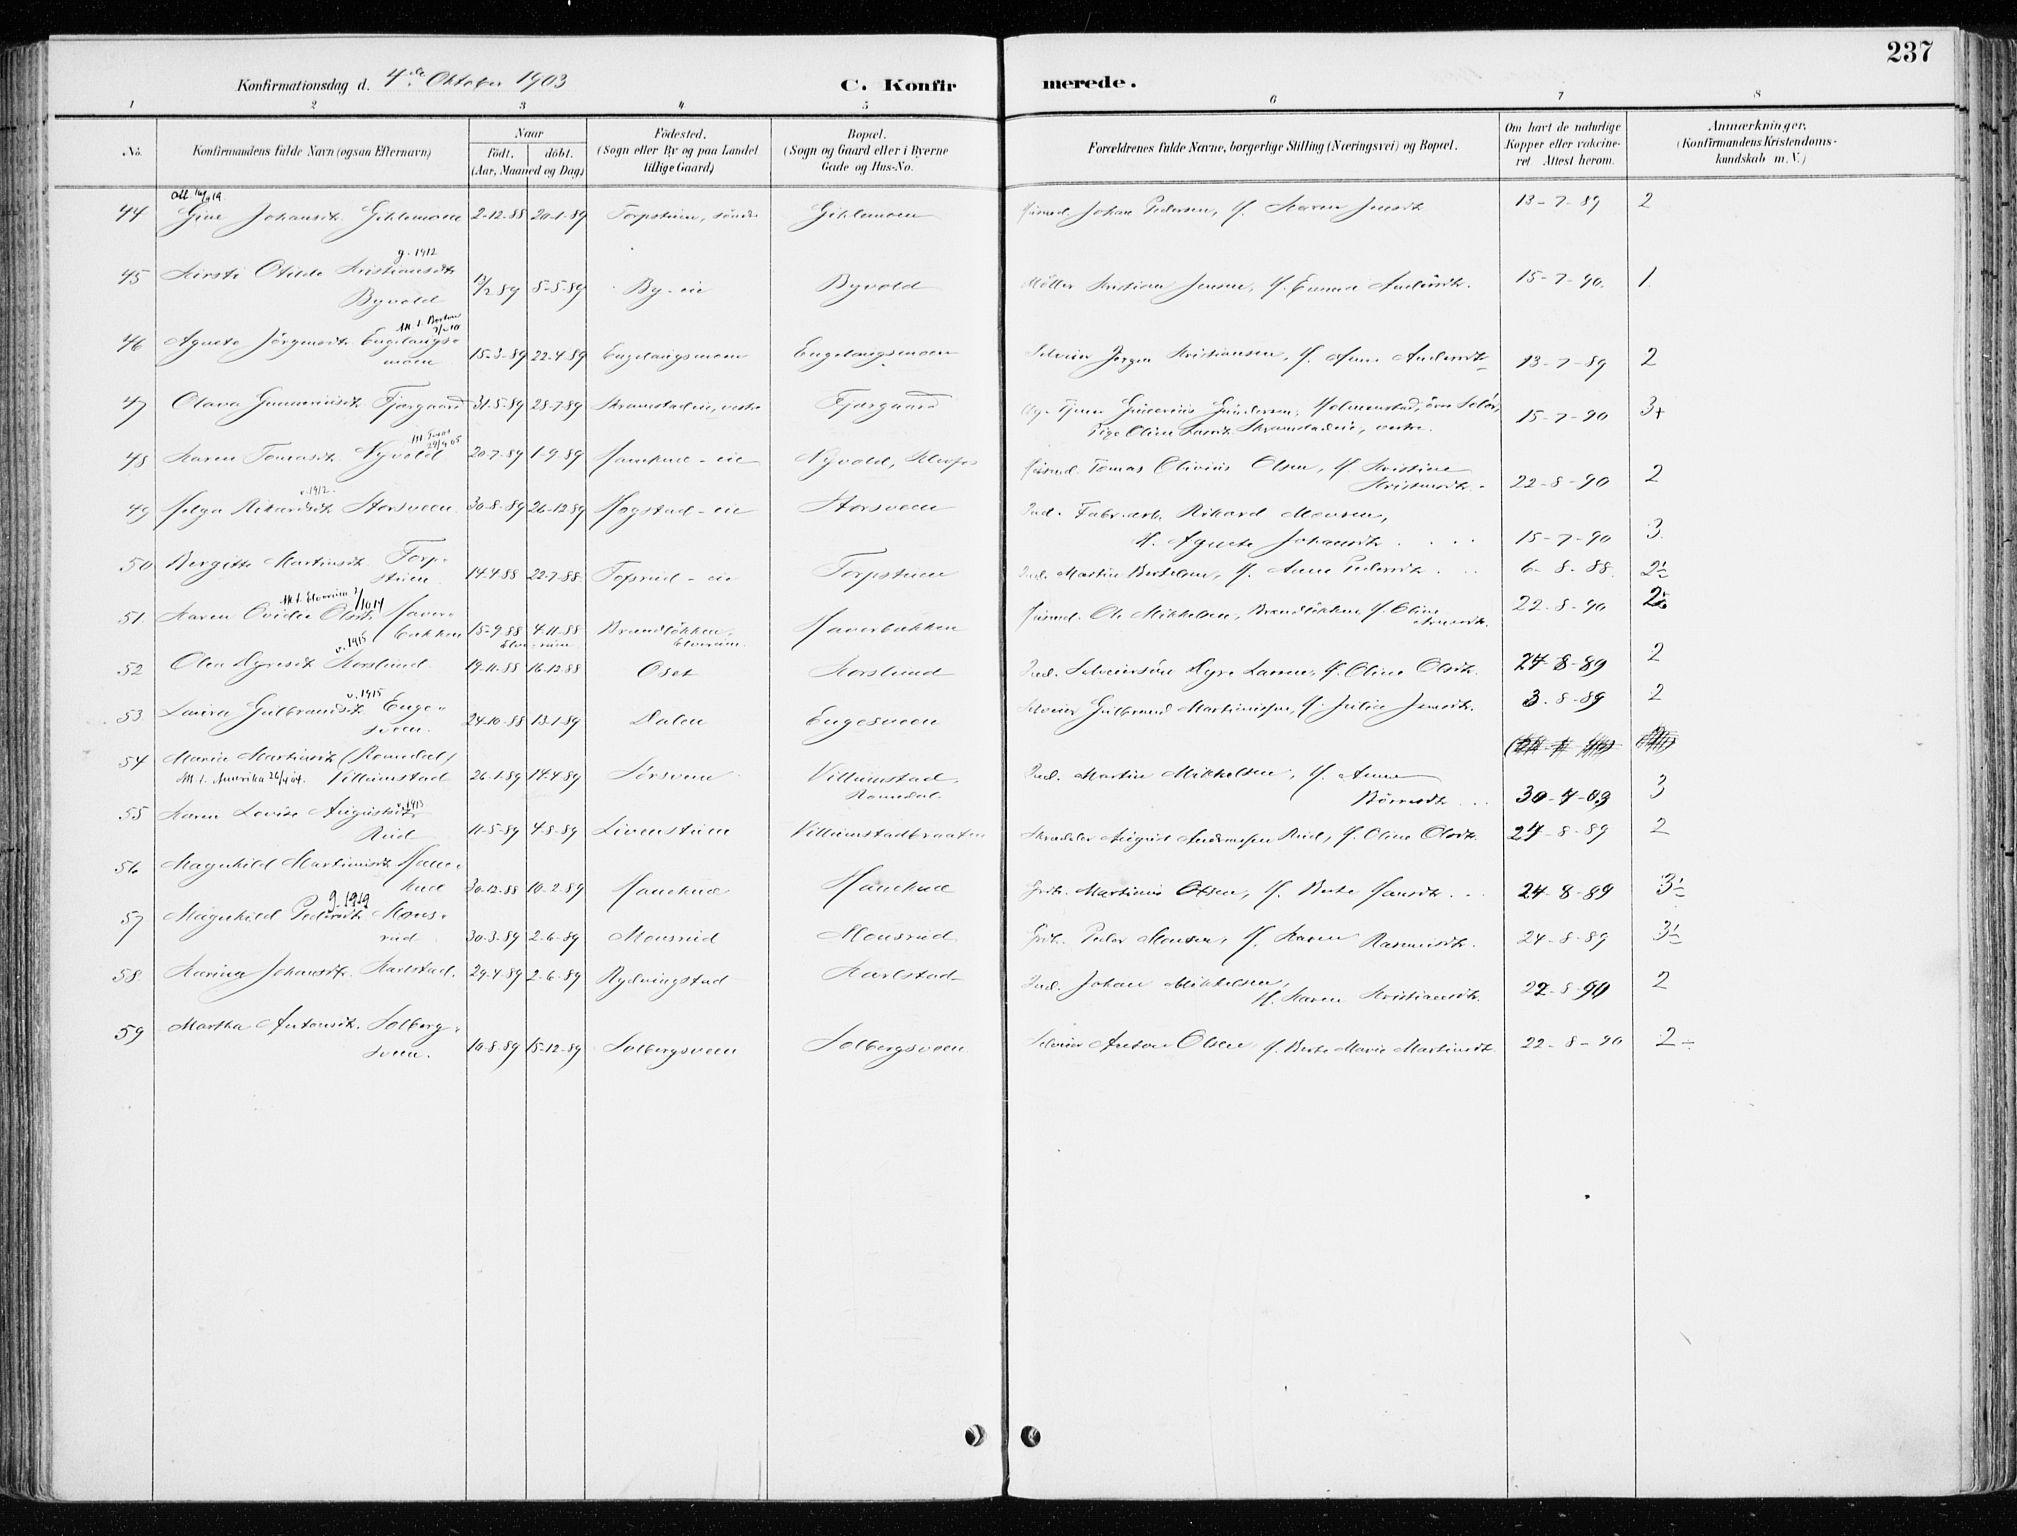 237
Konfirmationsdag d. 4de Oktober 1903
C. Konfirmerede.
1 2 3 4 5 6 7 8
No.
Konfirmandens fulde Navn (ogsaa Efternavn)
Naar
Födt. döbt.
(Aar, Maaned og Dag)
Födested.
(Sogn eller By og paa Landet
tillige Gaard)
Bopæl.
(Sogn og Gaard eller i Byerne
Gade og Hus-No.
Forældrenes fulde Navne, borgerlige Stilling (Næringsvei) og Bopæl.
Om havt de naturlige
Kopper eller vakcine-
ret. Attest herom.
Anmærkninger.
(Konfirmandens Kristendoms-
kundskab m. V.)
44 Gine Johansdt. Gihlemoen 2-12-88 20-1-89 Torpstuen, søndre Gihlemoen Johan Pedersen, H. Karen Jensdt. 13-7-89 2
g. 1912
45 Kirsti Otilde Kristiansdt. Byvold 5-5-89 By-eie Byvold Møller Kristian Jensen, H. Emma Andersdt. 15-7-90 1
46 Agnete Jörgensdt. Engelaugsmoen 15-3-89 22-4-89 Engelaugsmoen Engelaugsmoen Selveier Jørgen Kristiansen, H. Anne Andersdt. 13-7-89 2
47 Olava Gunneriusdt. Fjærgaard 31-5-89 28-7-89 Skramstadeie, vestre Fjærgaard Gunerius Gundersen, Pige Oline Larsdt. Skramstadeie, vestre. 15-7-90 3+
48 Karen Tomasdt. Nyvold 20-7-89 1-9-89 Nyvold, Tomas Olivius Olsen, H. Kristine Kristiansdt. 22-8-90 2
v. 1912
49 Helga Rikardsdt. Storsveen 30-8-89 26-12-89 Hogstad-eie Storsveen Ind. Fabr.arb. Rikard Monsen, H. Agnete Johansdt. 15-7-90 3
50 Bergitte Martinsdt. Torpstuen 14-4-88 22-7-88 Toprud-eie Torpstuen Ind. Martin Bertelsen, H. Anne Pedersdt. 6-8-88 2÷
51 Karen Ovidie Olsdt. Haverbakken 15-9-88 4-11-88 Brændløkken, Elverum Haverbakken Ole Mikkelsen, Brændløkken, H. Oline 22-8-90
v. 1915
52 Olea Dyresdt. Korslund 19-11-88 16-12-88 Oset Korslund Ind. Selveiersøn Dyre Larsen, H. Oline Olsdt. 24-8-89 2
v. 1915
53 Laura Gulbrandsdt. Engesveen 24-10-88 13-1-89 Dalen Engesveen Selveier Gulbrand Martinussen, H. Julie Jensdt. 3-8-89 2
54 Marie Martinsdt. (Romedal) Villumstad 26-1-89 14-4-89 Sörsveen Villumstad, Romedal. Ind. Martin Mikkelsen, H. Anne 30-7-03 3
Utfl. t. Amerika 26/4 04.
v. 1913
55 Karen Lovise Augustsdt. Rud 11-5-89 4-8-89 Livenstuen Villumstadbraaten Skrædder August Andreassen Rud, H. Oline Olsdt. 24-8-89 2
56 Magnhild Martinusdt. Hanekne 30-12-88 10-2-89 Hanekne Hanekne Grdb. Martinus Olsen, H. Berte Hansdt. 24-8-89 3÷
g. 1919
57 Magnhild Pedersdt. Monsrud 30-3-89 2-6-89 Monsrud Monsrud Grdb. Peder Monsen, H. Karen Rasmusdt. 24-8-89 3÷
58 Karina Johansdt. Karlstad. 29-4-89 2-6-89 Rydningstad Karlstad Ind. Johan Mikkelsen, H. Karen Kristiansdt. 22-8-90 2
59 Martha Antonsdt. Solbergsveen. 10-8-89 15-12-89 Solbergsveen Solbergsveen Selveier Anton Olsen H. Berte Marie Martinsdt. 22-8-90 2÷